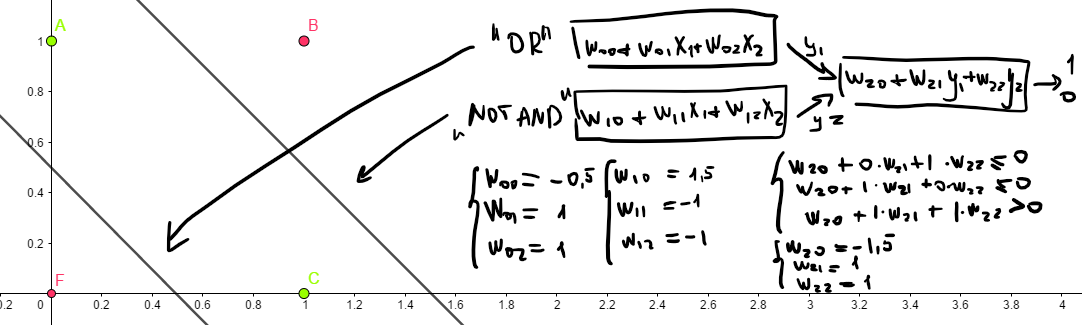 A
B
F
C
1
0.8
0.6
0.4
0.2
0
0.2
0.2
0.4
0.6
0.8
1
1.2
1.4
1.6
1.8
2
2.2
2.4
2.6
2.8
3
3.2
3.4
3.6
3.8
4
"OR" w00+w01x1+w02x2
y1
w20+w21y1+w22y2
1
0
"NOT AND" w10+w11x1+w12x2
y2
w00=-0,5
w01=1
w02=1
w10=1,5
w11=-1
w12=-1
w20+0·w21+1·w22≤0
w20+1·w21+0·w22≤0
w20+1·w21+1·w22>0
w20=-1,5
w21=1
w22=1